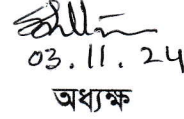 03.11.24
অধ্যক্ষ